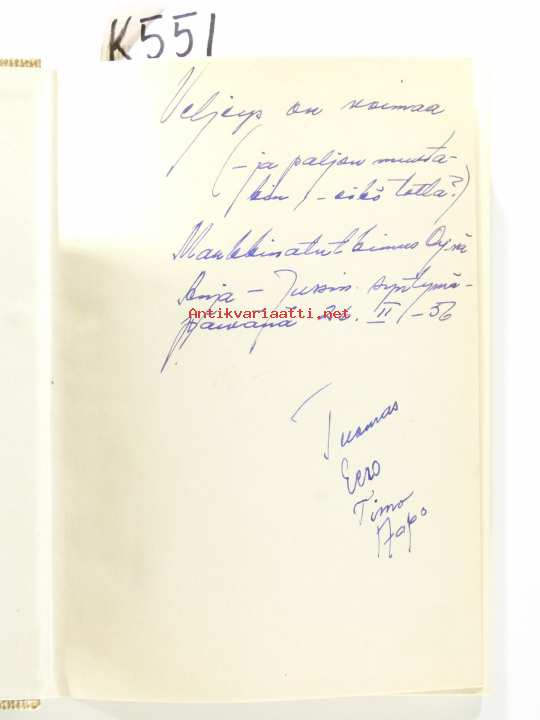 K551
Veljeys on voimaa
(- ja paljon muuta-
kin, - eikö totta?)
Markkinatutkimus Oy:nä
Anja - Jussin syntymä-
päivänä 26. II -56
Antikvariaatti.net
Tuomas
Eero
Timo
Aapo